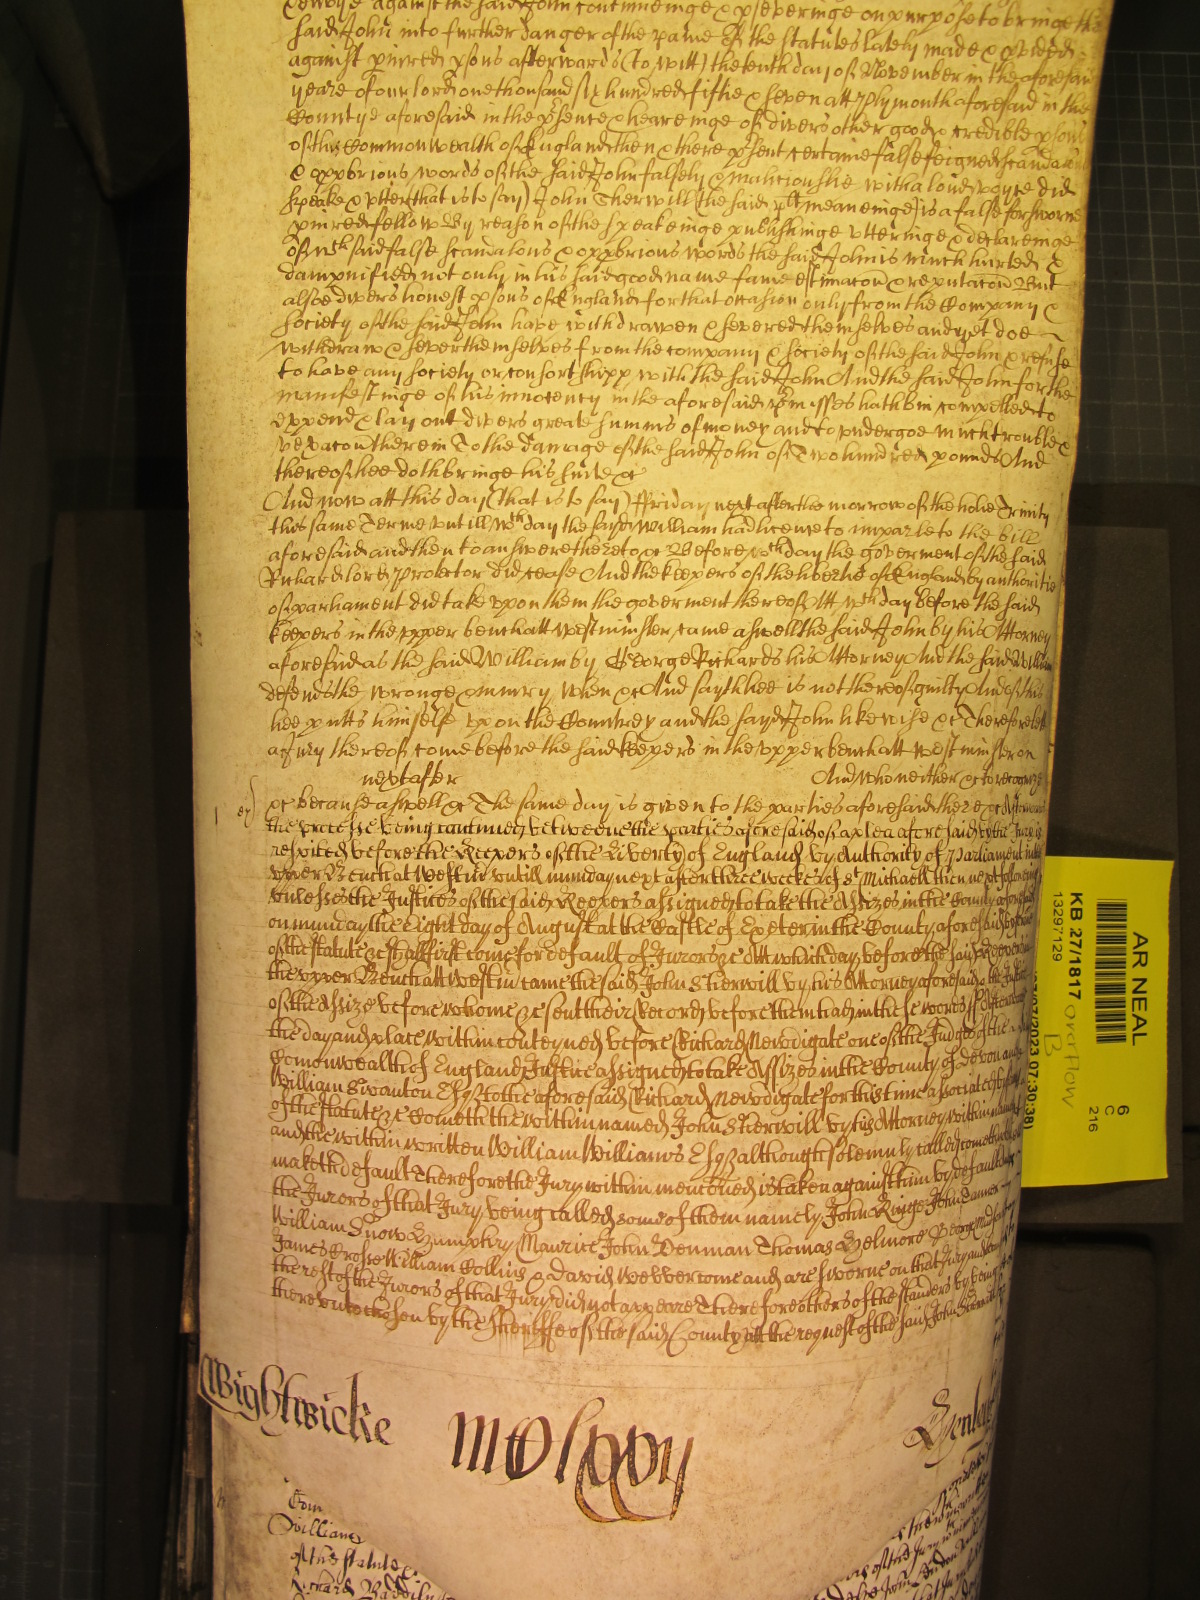 against the said John continueinge & p'severinge on purpose to bringe the
said John into further danger of the paine of the statutes lately made & p'vided
against p'iured p'sons afterwards (to witt) the tenth day of November in the aforesaid
yeare of our lord one thousand six hundred fiftie & seven att Plymouth aforesaid in the
Countye aforesaid in the p'sence & heareinge of divers other good & credible p'sons
of this Commonwealth of England then & there p'sent certaine false feigned scandalous
& opp'brious words of the said John falsely & maliciouslie with a loud voyce did
speake & vtter that is to say) John Sherwill (the said plt meaneinge) is a false forsworne
p'iured fellow By reason of the speakeinge publishinge vtteringe & declareinge
of wch said false scandalous & opp'brious words the said John is much hurted &
dampnified not only in his said good name fame estimacon & reputacon But
alsoe divers honest p'sons of England for that occasion only from the Company &
society of the said John have withdrawen & severed themselves and yet doe
withdraw & sever themselves from the company & society of the said John & refuse
to have any society or consortshipp with the said John And the said John for the
manifestinge of his innocency in the aforesaid p'misses hath bin compelled to
expend & lay out divers greate summs of money and to vndergoe much trouble &
vexacon therein To the damage of the said John of Two hundred pounds And
thereof hee doth bringe his suite &c
And now att this day (that is to say) Ffriday next after the morrow of the holie Trinity
this same Terme vntill wch day the sayd William had licence to imparle to the bill
aforesaid and then to answere thereto &c Before wch day the goverment of the said
Richard lord Protector did cease And the keepers of the libertie of England by authoritie
of parliament did take vpon them the goverment thereof Att wch day before the said
keepers in the vpper bench att Westminster came aswell the said John by his Attorney
aforesaid as the said William by George Rickards his Attorney And the said William
defends the wronge & iniury when &c And sayth hee is not thereof guilty And of this
hee putts himself vpon the Countrey and the sayd John likewise &c Therefore lett
a Jury thereof come before the said keepers in the vpper bench att Westminster on
next after And who neither &c to recognize
&c because aswell &c The same day is given to the parties aforesaid there &c Afterwards
the processe being continued betweene the parties aforesaid of a plea aforesaid by the Jury is
respited before the Keepers of the Liberty of England by Authority of Parliament in the
vpper Bench at Westm' vntill munday next after three weekes of St Michaell then next following
vnlesse the Justices of the said Keepers assigned to take the Assizes in the County aforesaid
on munday the Eight day of August at the Castle of Exeter in the County aforesaid by forme
of the statute &c shall first come for default of Jurors &c Att which day before the said Keepers in
the vpper Bench att Westm' came the said John Sherwill by his Attorney aforesaid & the Justices
of the Assize before whome &c sent their Record before them had in these words ss Afterwards
the day and place within conteyned before Richard Newdigate one of the Judges of the
Comonwealth of England Justice assigned to take Assizes in the County of Devon and
William Swanton Esqr to the aforesaid Richard Newdigate for this time associated by forme
of the statute &c Cometh the within named John Sherwill by his Attorney within named
and the within written William Williams Esqr although solemnly called cometh not but
maketh default Therefore the Jury within menconed is taken against him by default And
the Jurors of that Jury being called some of them namely John Ringe John
William Snow Humphry Maurice John Denman Thomas Helmore George
James Crosse William Collins & David Webber come and are sworne on that Jury and because
the rest of the Jurors of that Jury did not appeare Therefore others of the standers by being
therevnto chosen by the Sheriffe of the said County att the request of the said John Sherwill
Wightwicke
AR NEAL
KB 27/1817
13297129
overflow
B
17/07/2023 07:30:38
6
C
216
William
of the statute
Richard